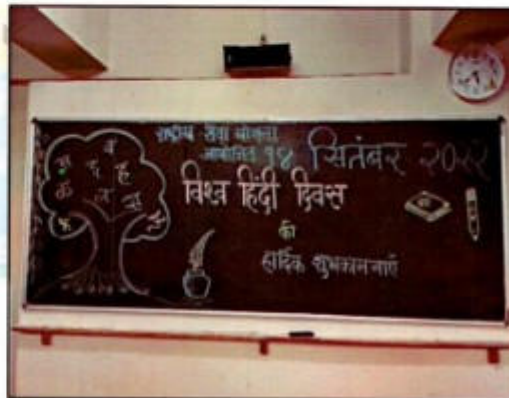 राष्ट्रीय सेवा योजना
आयोजित १४ सितंबर २०२२
विश्व हिंदी दिवस
की
हार्दिक शुभकामनाएँ